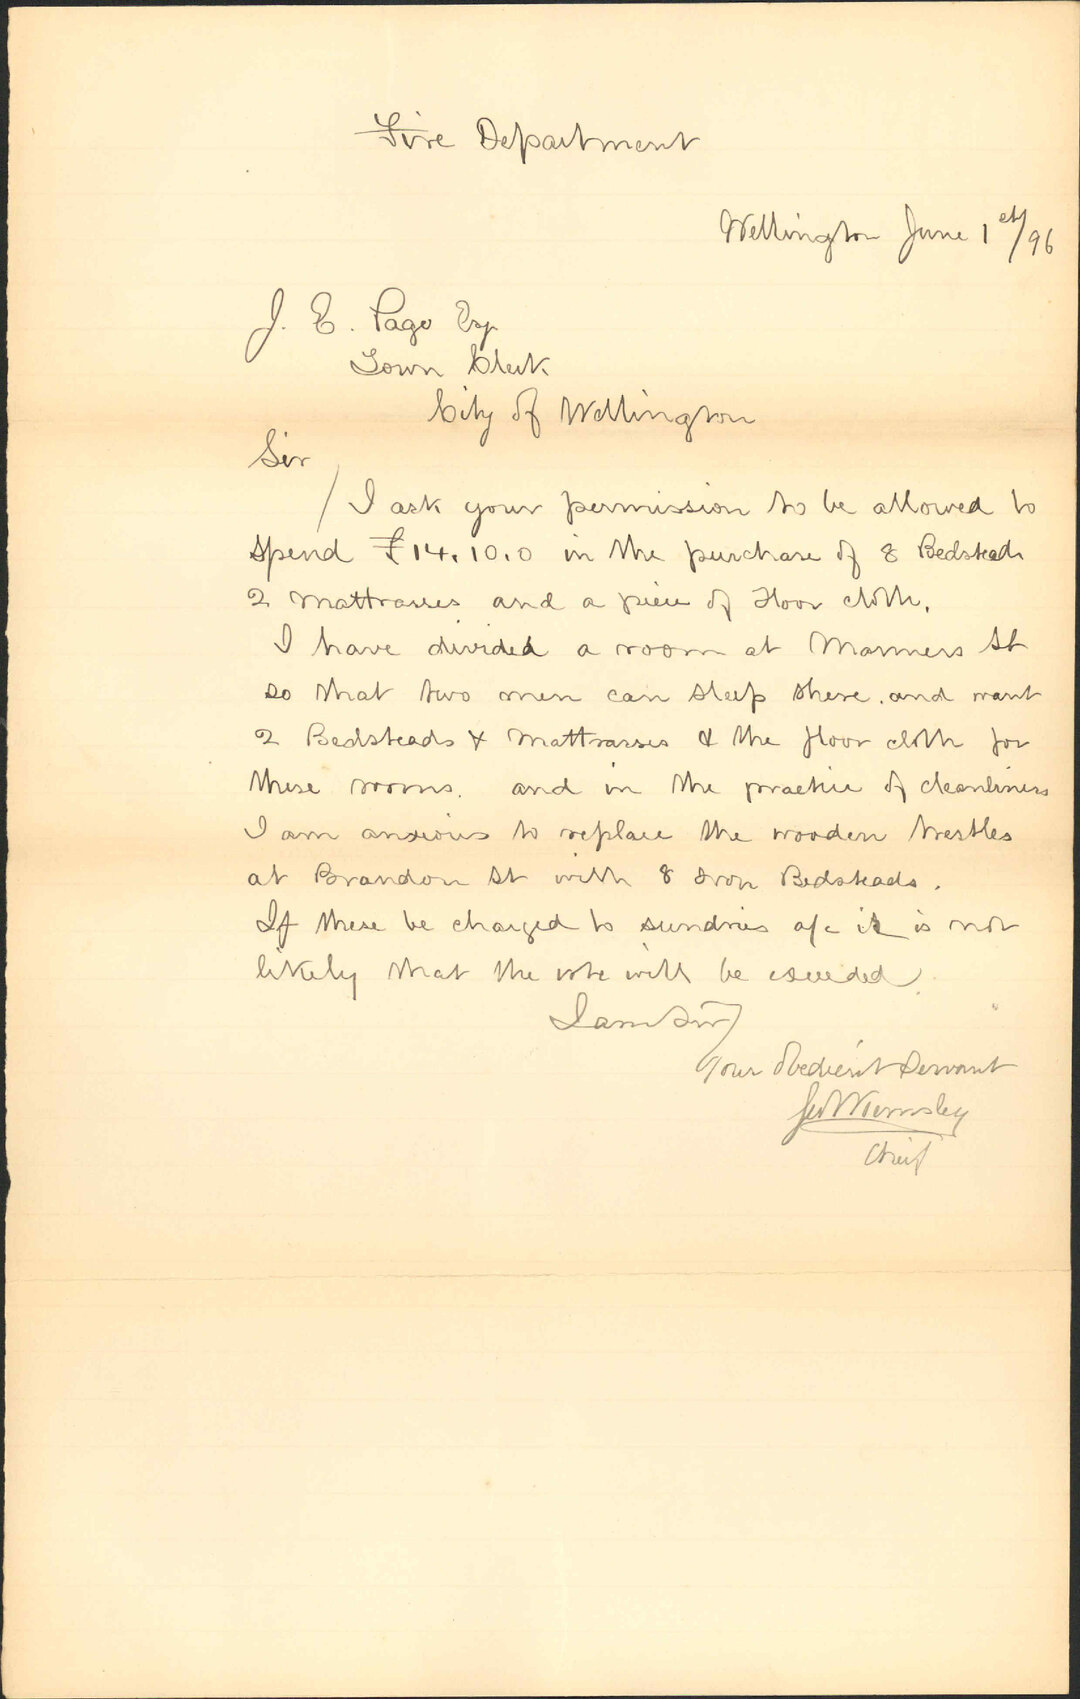 Fire Department
Wellington June 1st/96
J. E. Page Esq
Town Clerk
City of Wellington
Sir
/ I ask your permission to be allowed to
spend £14.10.0 in the purchase of 8 Bedsteads
2 Mattrasses and a piece of Floor cloth.
I have divided a room at Manners St
so that two men can sleep there. and want
2 Bedsteads & Mattrasses & the floor cloth for
these rooms. and in the practice of cleanliness
I am anxious to replace the wooden trestles
at Brandon St with 8 Iron Bedsteads.
If these be charged to sundries a/c it is not
likely that the vote will be exceeded.
I am Sir
Your Obedient Servant
Cheif